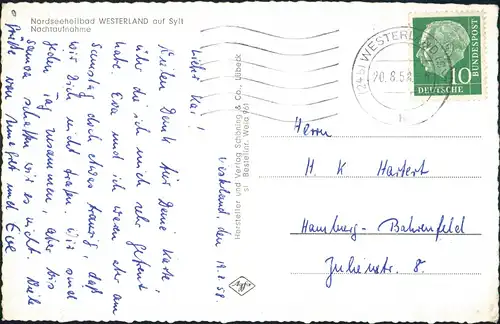 Nordseeheilbad WESTERLAND auf Sylt
Nachtaufnahme
Westerland, den 19.8.58
Lieber Kai!
Vielen Dank für Deine Karte,
über die ich mich sehr gefreut
habe. Eva und ich waren aber am
Samstag doch etwas traurig, daß
wir Dich nicht trafen. Wir sind
jeden Tag zusammen, aber bis
schaffen wir es nicht. Viele
Grüße von und Eva
Hersteller und Verlag Schöning & Co., Lübeck
Bestellnr. Weld 161
(24b) WESTERLAND
20.8.58
DEUTSCHE
BUNDESPOST
10
Herrn
H. K. Hartert
Hamburg-Bahrenfeld
Julienstr. 8.